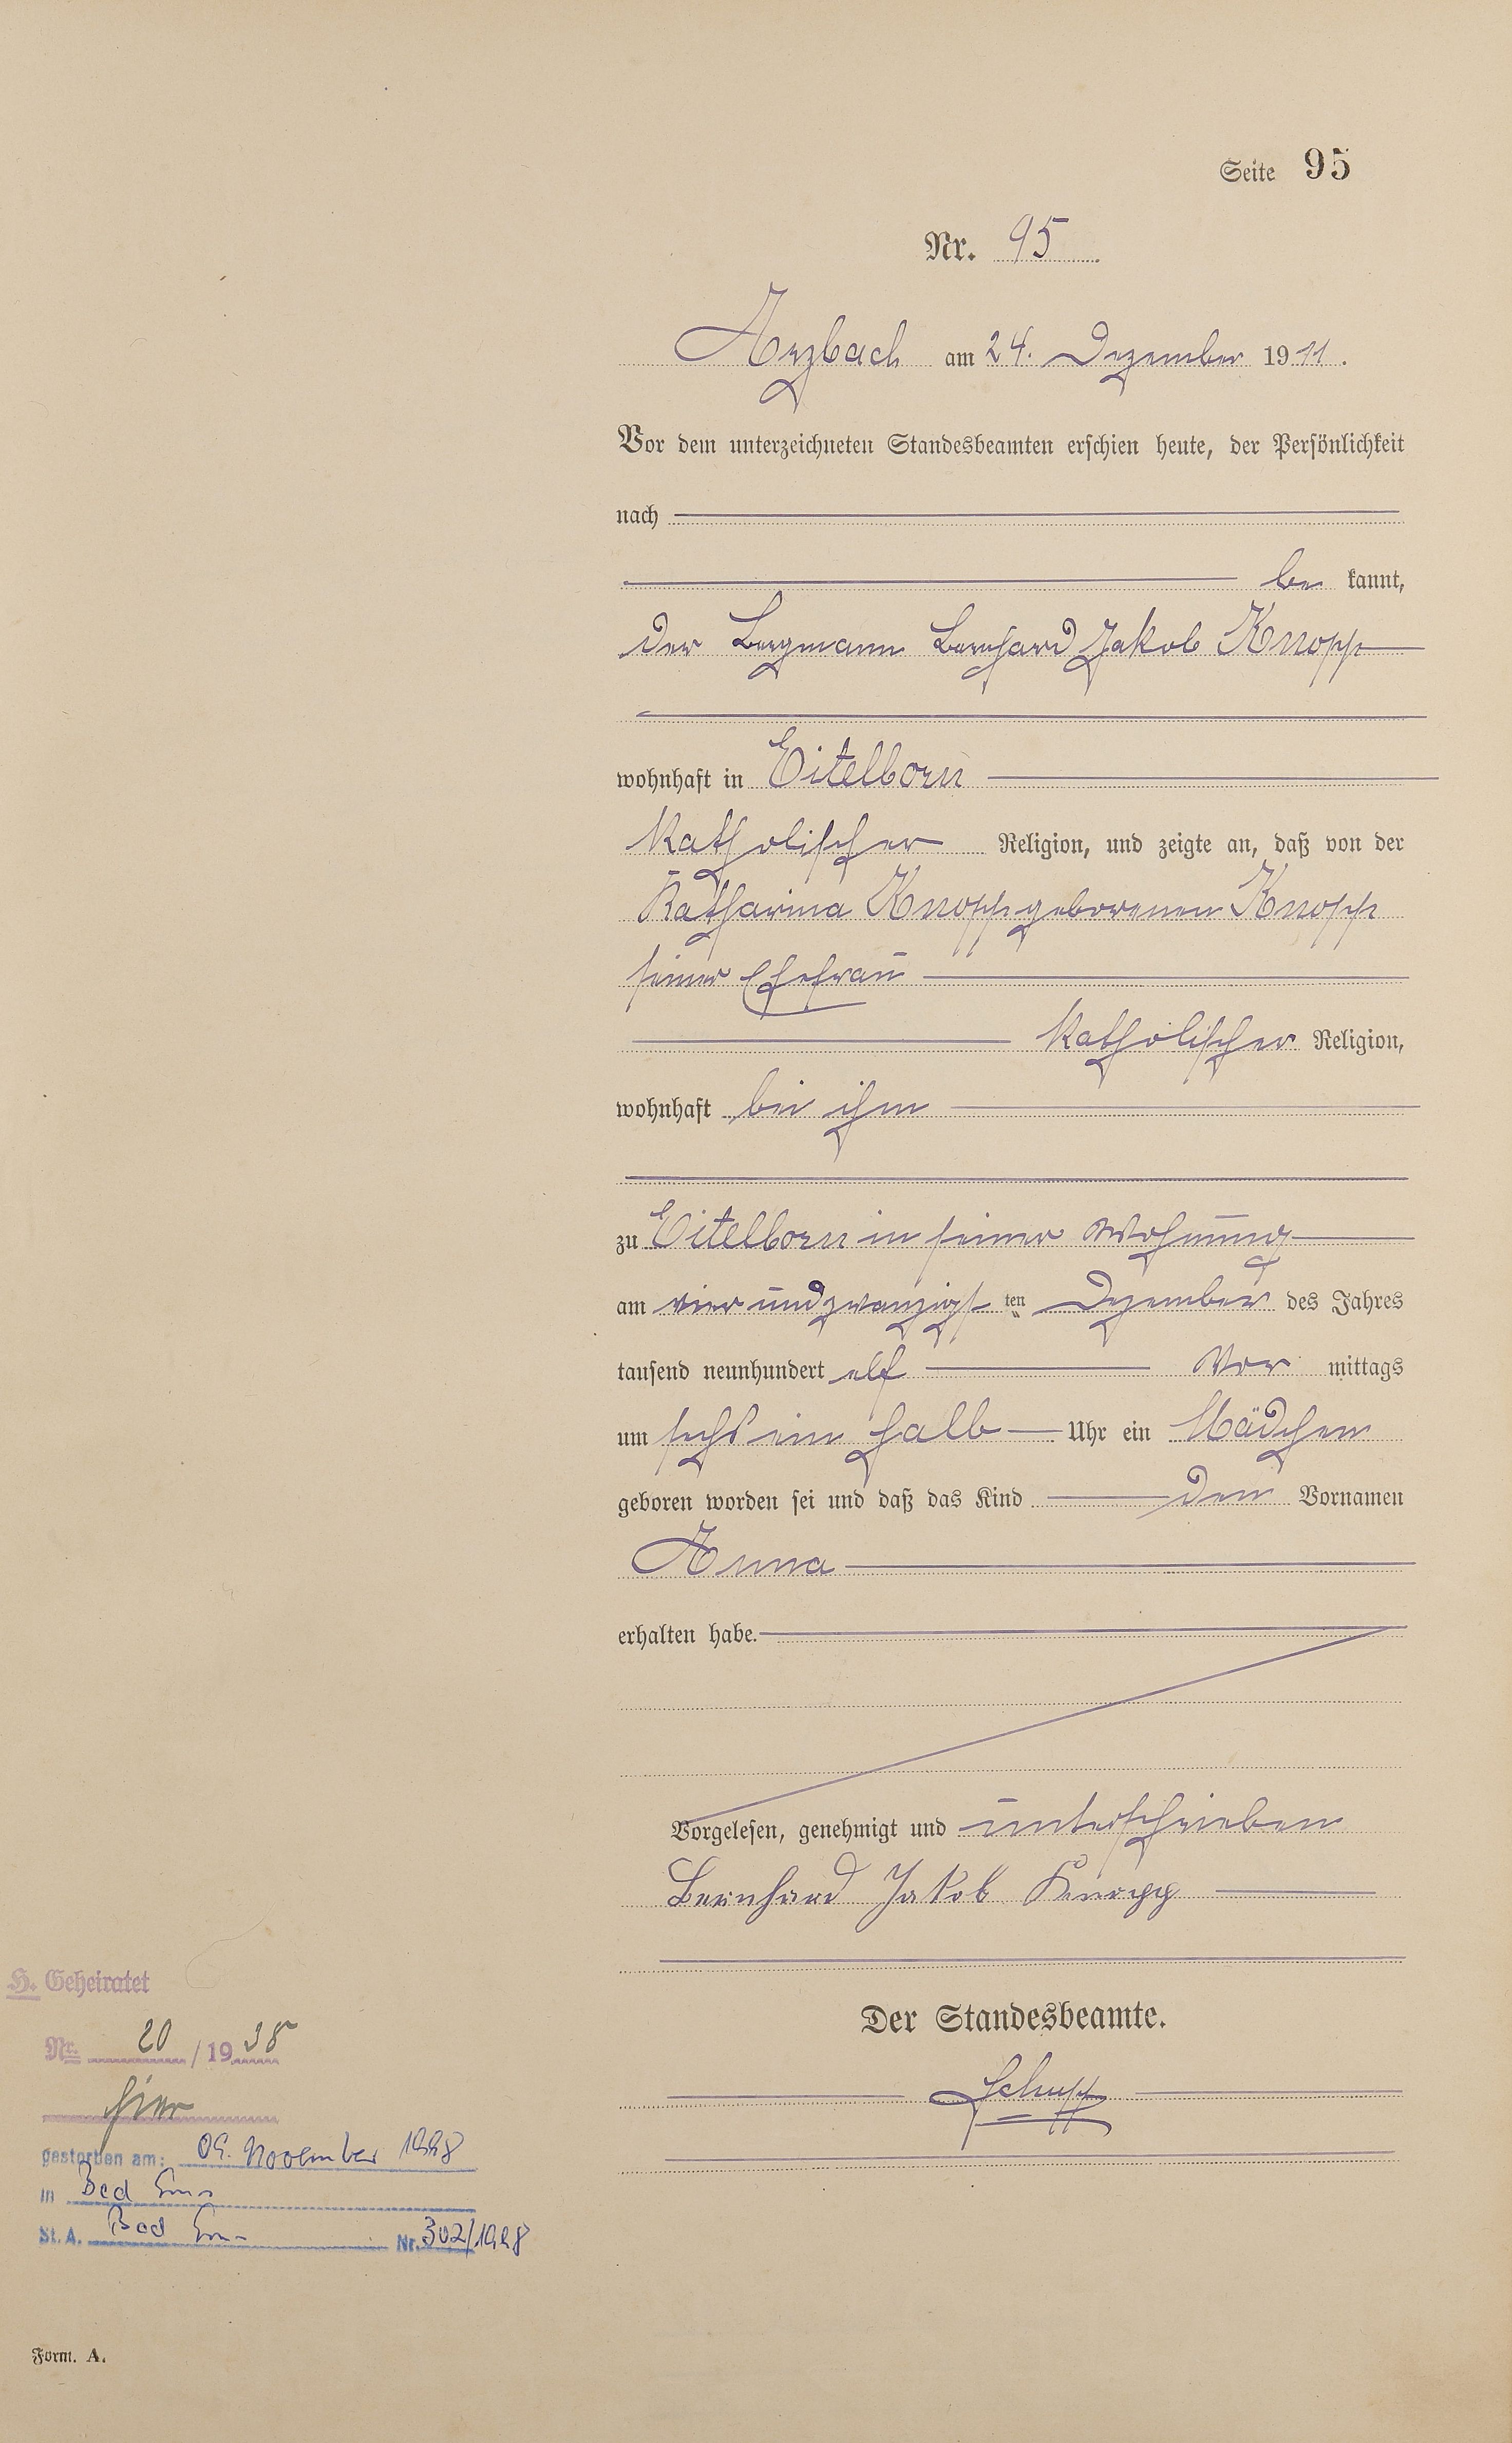 Seite 95
Nr. 95
Arzbach am 24. Dezember 1911.
Vor dem unterzeichneten Standesbeamten erschien heute, der Persönlichkeit
nach
be kannt,
der Bergmann Bernhard Jakob Knopp
wohnhaft in Eitelborn
katholischer Religion, und zeigte an, daß von der
Katharina Knopp geborenen Knopp
seiner Ehefrau
katholischer Religion,
wohnhaft bei ihm
zu Eitelborn in seiner Wohnung
am vier und zwanzigsten Dezember des Jahres
tausend neunhundert elf Vor mittags
um sechs ein halb Uhr ein Mädchen
geboren worden sei und daß das Kind den Vornamen
Anna
erhalten habe.
Vorgelesen, genehmigt und unterschrieben
Bernhard Jakob Knopp
Der Standesbeamte.
Schupp
H. Geheiratet
Nr. 20 / 1938
hier
gestorben am: 09. November 1998
in Bad Ems
St. A. Bad Ems Nr. 302/1998
Form. A.